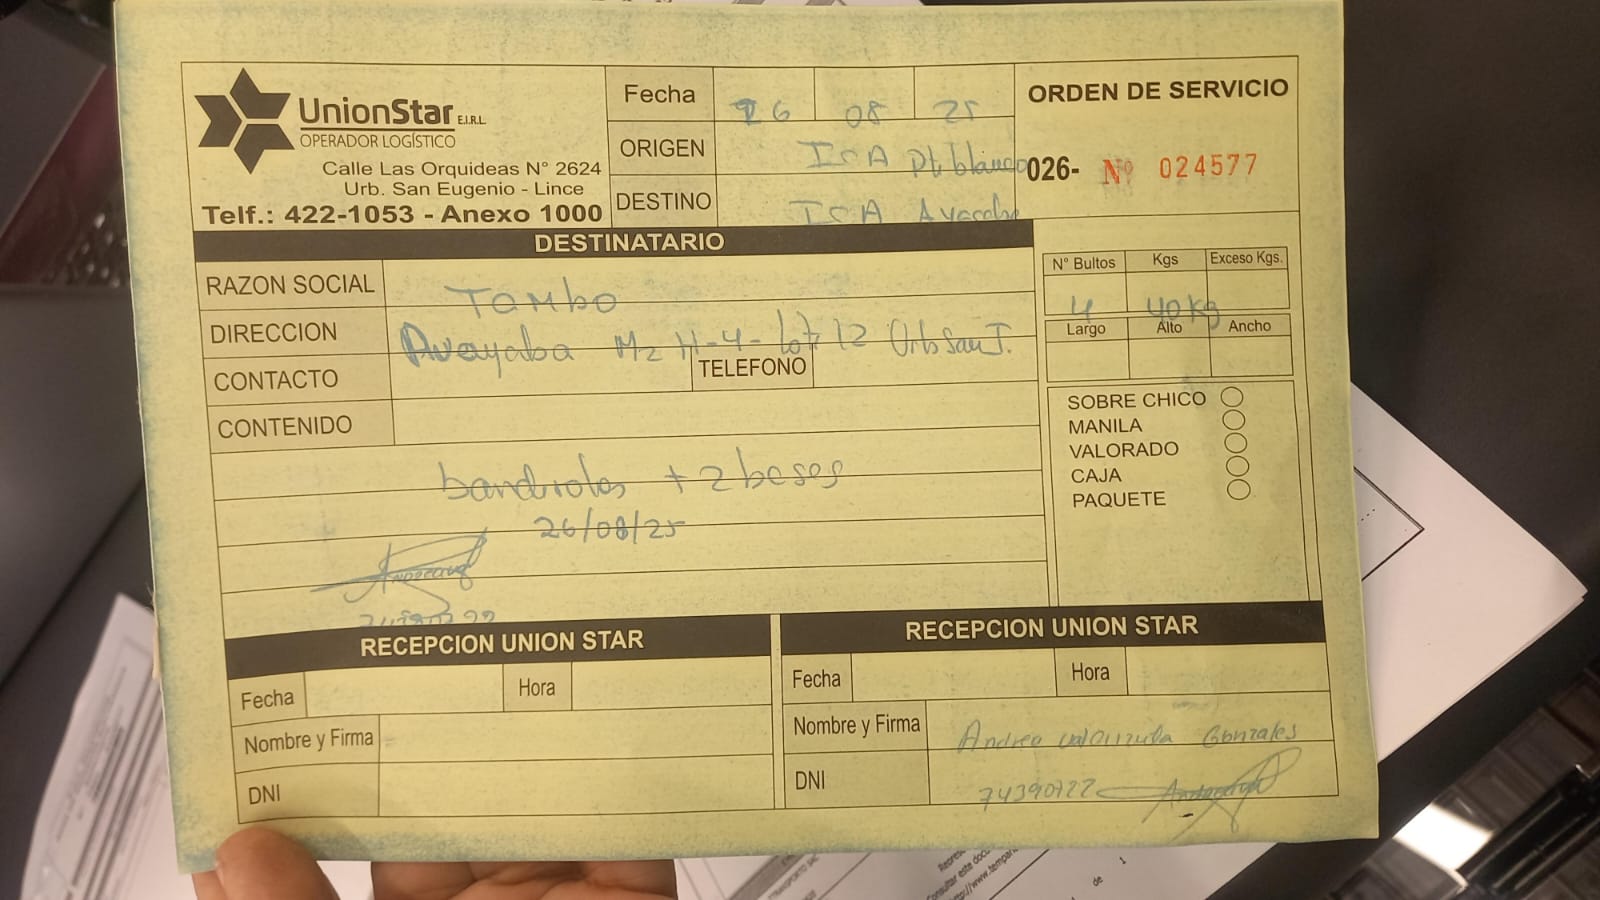 UnionStar E.I.R.L.
OPERADOR LOGÍSTICO
Calle Las Orquideas N° 2624
Urb. San Eugenio - Lince
Telf.: 422-1053 - Anexo 1000
Fecha 26 08 25
ORIGEN ICA Pt. blanco
DESTINO ICA
ORDEN DE SERVICIO
026- Nº 024577
DESTINATARIO
RAZON SOCIAL Tambo
DIRECCION Mz H-4- Lote 12 Urb San J.
CONTACTO TELEFONO
CONTENIDO
banderolas + 2 bases
26/08/25
N° Bultos Kgs Exceso Kgs.
4 40 Kg
Largo Alto Ancho
SOBRE CHICO
MANILA
VALORADO
CAJA
PAQUETE
RECEPCION UNION STAR
Fecha Hora
Nombre y Firma
DNI
RECEPCION UNION STAR
Fecha Hora
Nombre y Firma Andrea Valenzuela Gonzales
DNI 74390722